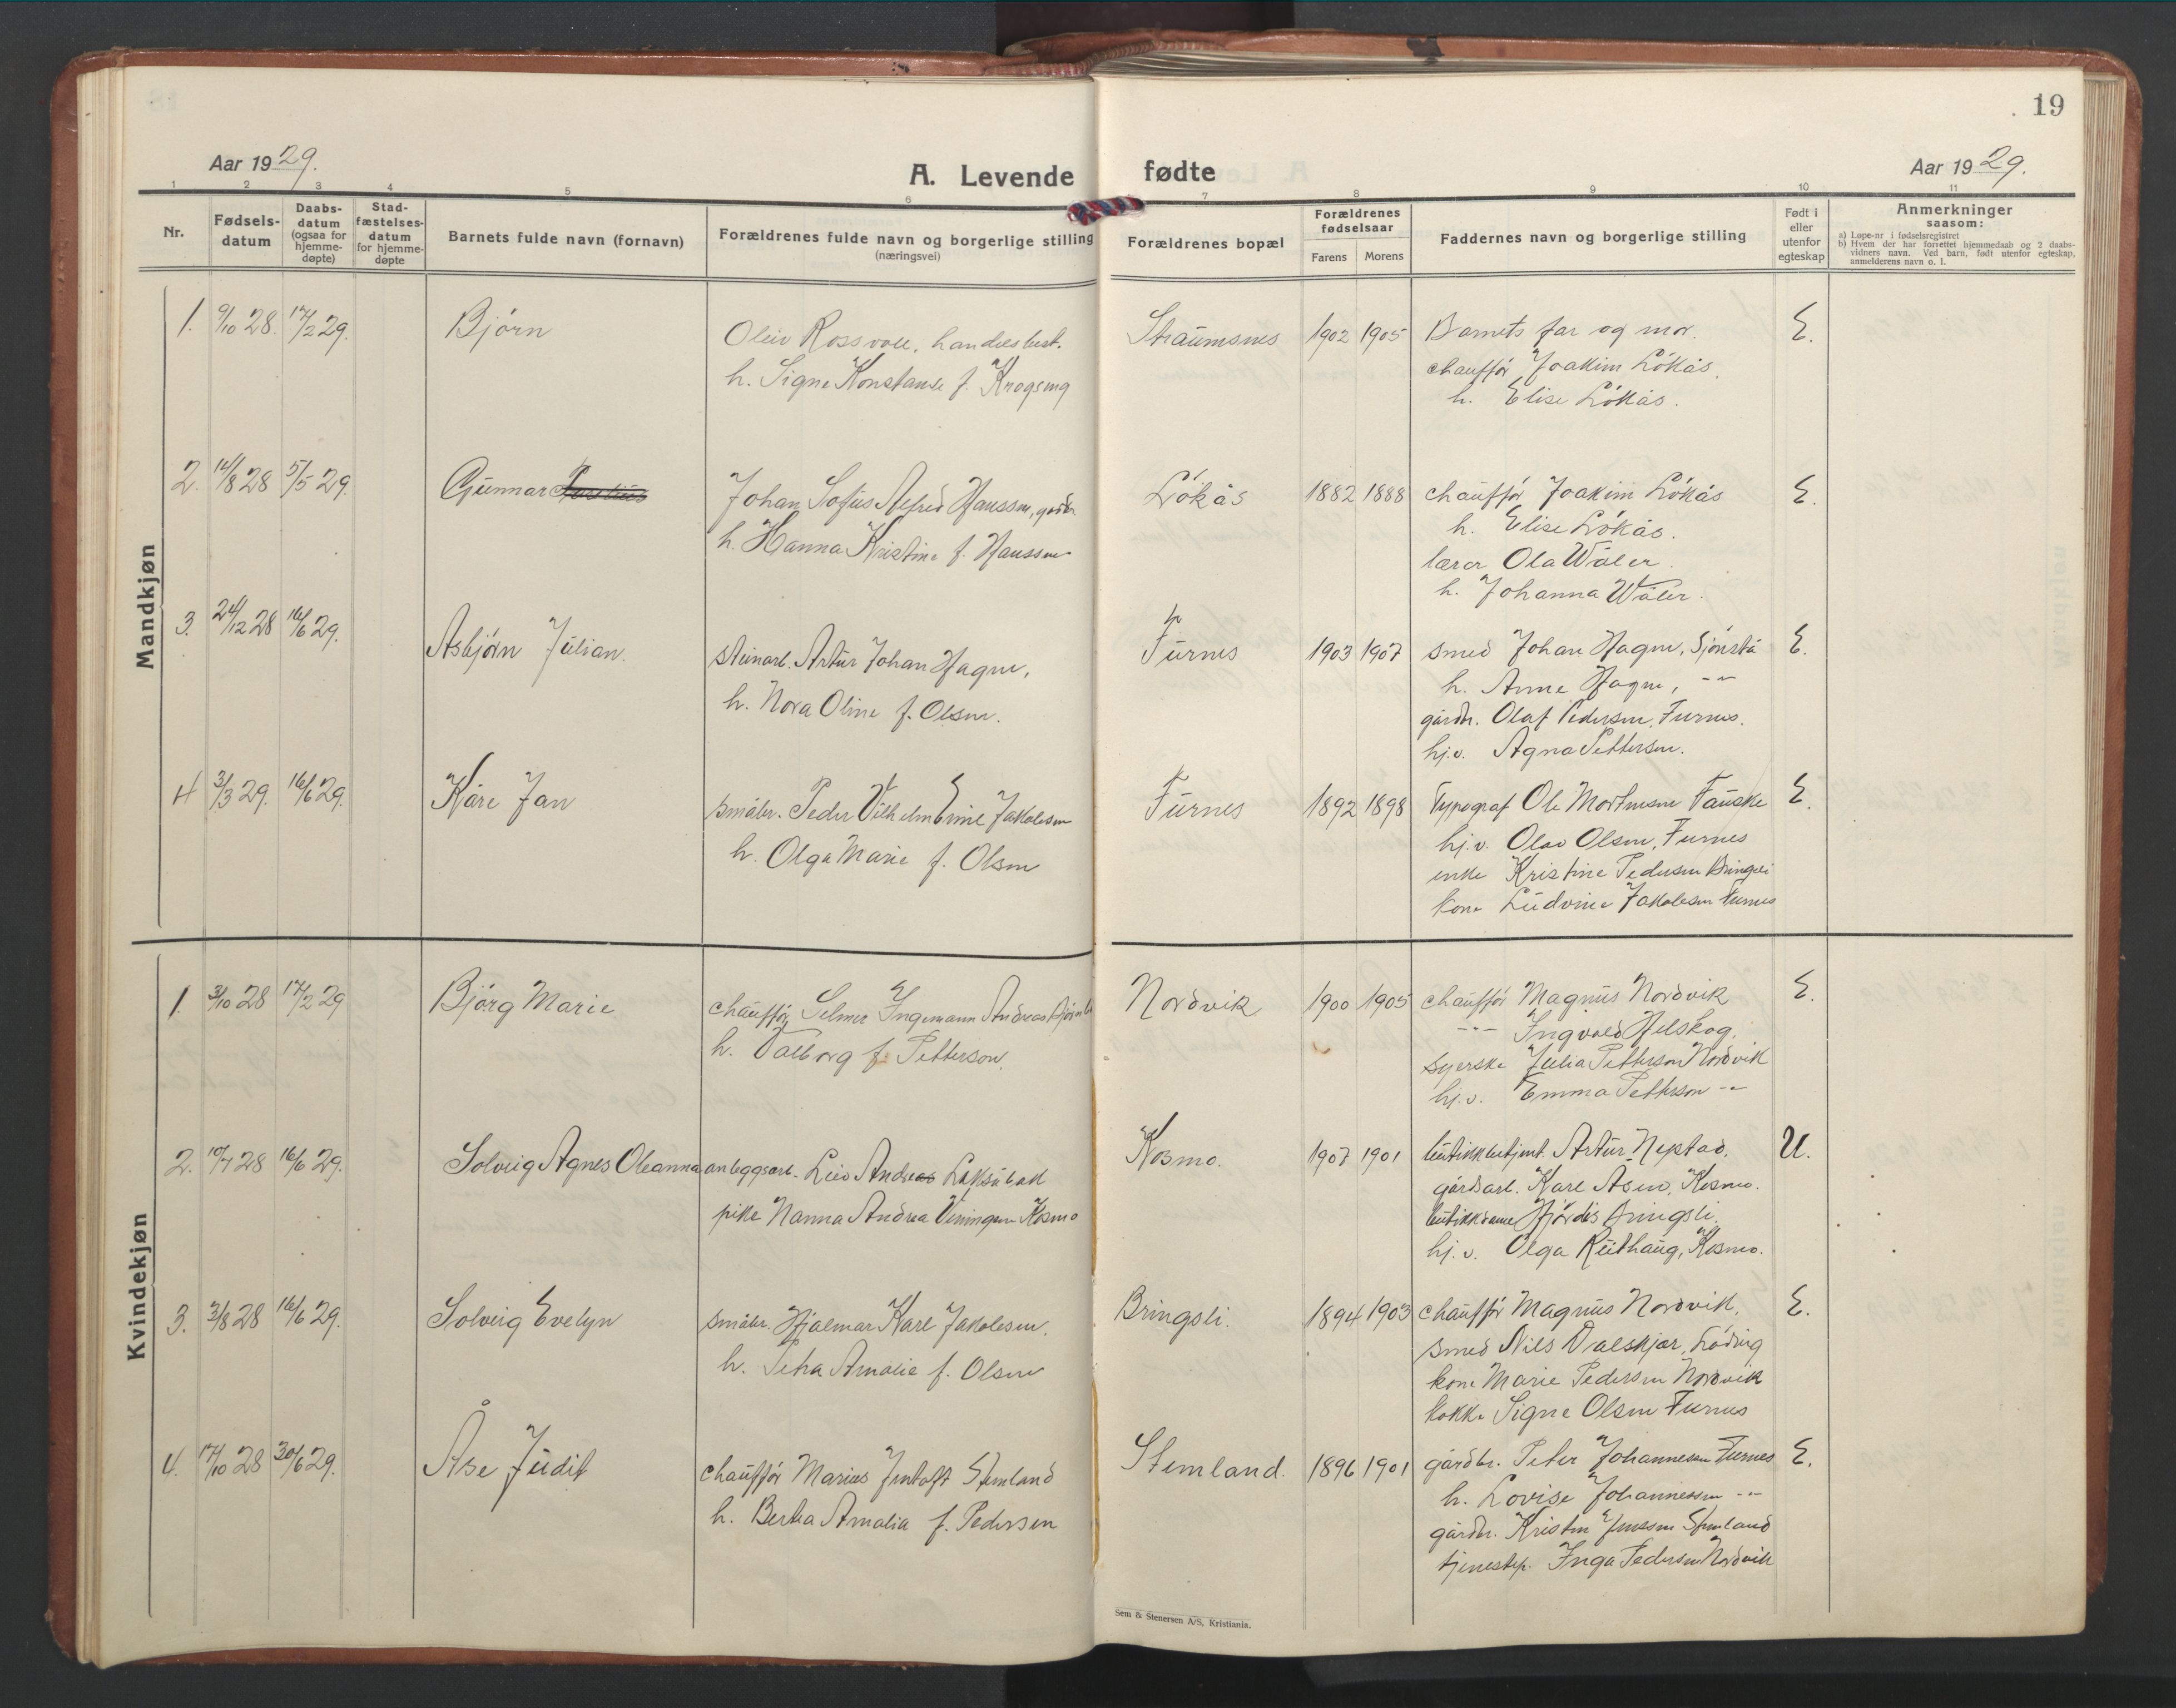 19
Aar 1929.
A. Levende fødte
Aar 1929.
1 2 3 4 5 6 7 8 9 10 11
Nr.
Fødsels-
datum
Daabs-
datum
(ogsaa for
hjemme-
døpte)
Stad-
fæstelses-
datum
for hjemme-
døpte
Barnets fulde navn (fornavn)
Forældrenes fulde navn og borgerlige stilling
(næringsvei)
Forældrenes bopæl
Forældrenes
fødselsaar
Farens Morens
Faddernes navn og borgerlige stilling
Født i
eller
utenfor
egteskap
Anmerkninger
saasom:
a) Løpe-nr i fødselsregistret
b) Hvem der har forrettet hjemmedaab og 2 daabs-
vidners navn. Ved barn, født utenfor egteskap,
anmelderens navn o. l.
Mandkjøn
1. 9/10 28. 17/2 29. Bjørn
Oleiv Rossvoll, handelsbest.
h. Signe Konstanse f. Krogseng
Straumsnes 1902 1905
Barnets far og mor. E.
chauffør Joakim Løkås.
h. Elise Løkås.
2. 14/8 28 5/5 29. Gunnar
Johan Sofus Alfred Hanssen, gårdbr.
h. Hanna Kristine f. Hanssen
Løkås 1882 1888
chauffør Joakim Løkås E.
h. Elise Løkås.
lærer Ola Wåler.
h. Johanna Wåler.
3. 24/12 28 16/6 29. Asbjørn Julian.
steinarb. Artur Johan Hagen,
h. Nora Oline f. Olsen.
Furnes 1903 1907
smed Johan Hagen, Sjønstå E.
h. Anne Hagen, -"-
gårdbr. Olaf Pedersen, Furnes.
hj.v. Agna Pettersen.
4 3/3 29. 16/6 29. Kåre Jan
småbr. Peder Vilhelm Emil Jakobsen
h. Olga Marie f. Olsen
Furnes 1892 1898
Typograf Ole Mortensen Fauske E.
hj.v. Olav Olsen, Furnes
enke Kristine Pedersen Bringsli
kone Ludvine Jakobsen Furnes
Kvindekjøn
1. 3/10 28 17/2 29 Bjørg Marie
chauffør Selmer Ingemann Andreas
h. Valborg f. Petterson.
Nordvik 1900 1905
chauffør Magnus Nordvik E.
-"- Ingvald Helskog.
syerske Julia Petterson Nordvik
hj.v. Emma Petterson -"-
2. 10/7 28 16/6 29. Solveig Agnes Oleanna
anleggsarb. Leiv Andreas Laksåbak
pike Nanna Andrea Viningsen Kosmo
Kosmo. 1907 1901
butikkbetjent. Artur Neptad. U.
gårdsarb. Karl Åsen, Kosmo.
butikkdame Hjørdis Bringsli.
hj.v. Olga Reithaug, Kosmo.
3. 3/8 28 16/6 29. Solveig Evelyn
småbr. Hjalmar Karl Jakobsen.
h. Petra Amalie f. Olsen
Bringsli. 1894 1903
chauffør Magnus Nordvik, E.
smed Nils Valskjær, Løding
kone Marie Pedersen Nordvik
kokke Signe Olsen Furnes
4. 17/10 28 30/6 29. Åse Judit
chauffør Marius Jentoft Stemland
h. Berta Amalia f. Pedersen
Stemland. 1896 1901
gårdbr. Peter Johannessen Furnes E.
h. Lovise Johannessen -"-
gårdbr. Kristen Jenssen Stemland
tjenestep. Inga Pedersen Nordvik
Sem & Stenersen A/S, Kristiania.